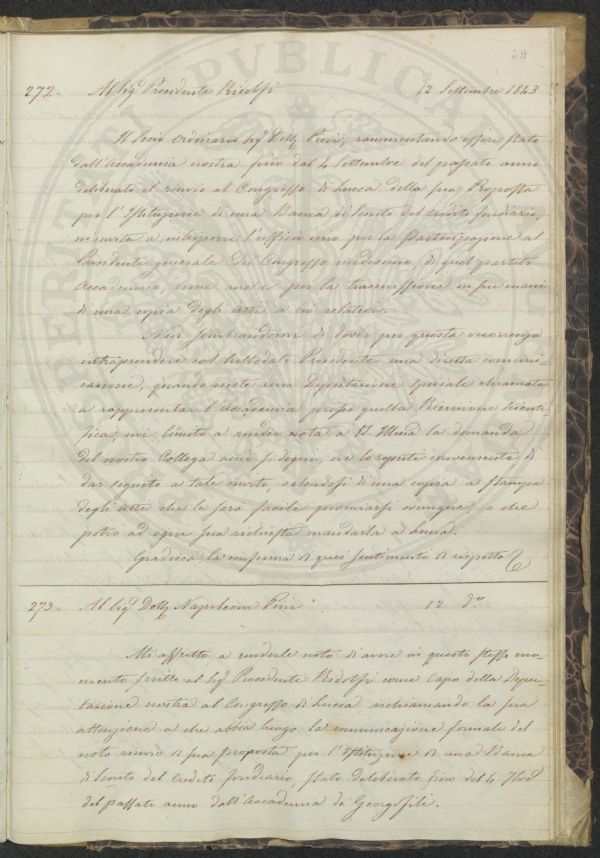 29
272= Al Sig.r Presidente Ridolfi 12 Settembre 1843
Il Socio Ordinario Sig.r Dott.r Pini, rammentando essere stato
dall'Accademia nostra fino dal 4 Settembre del passato anno
deliberato il rinvio al Congresso di Lucca della sua Proposta
per l'Istituzione di una Banca di Sconto del Credito fondiario,
m'invita a interporre l'ufficio mio per la partecipazione al
Presidente generale del Congresso medesimo, di quel partito
Accademico, come pure per la trasmissione in sue mani
di una copia degli atti a ciò relativi.
Non sembrandomi di dover per questa occorrenza
intraprendere col sullodato Presidente una diretta comuni-
cazione, quando esiste una Deputazione speciale chiamata
a rappresentar l'Accademia presso quella Riunione Scienti-
fica, mi limito a render nota a V. Ill.ma la domanda
del nostro Collega acciò si degni, ove lo reputi conveniente di
dar seguito a tale invito, valendosi di una copia a stampa
degli atti che le sarà facile procurarsi ovunque, o che
potrò ad ogni sua richiesta mandarla a Lucca.
Gradisca la conferma di quei sentimenti di rispetto
273= Al Sig.r Dott.r Napoleone Pini 12 d.o
Mi affretto a renderle noto d'avere in questo stesso mo-
mento scritto al Sig.r Presidente Ridolfi come Capo della Depu-
tazione nostra al Congresso di Lucca, richiamando la sua
attenzione a che abbia luogo la comunicazione formale del
noto rinvio di sua proposta per l'Istituzione di una Banca
di Sconto del Credito fondiario, stato deliberato fino del 4 7bre
del passato anno dall'Accademia de' Georgofili.